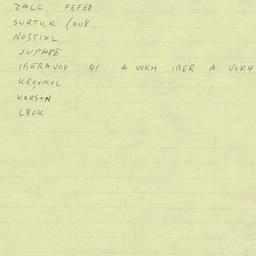 ZALC FEFER
SURTU,K
NOSTIXL
JUPHPE
IBERAVOX 41 A VOKH IBER A VOKH
KROXMOL
KARSTN
LBOK